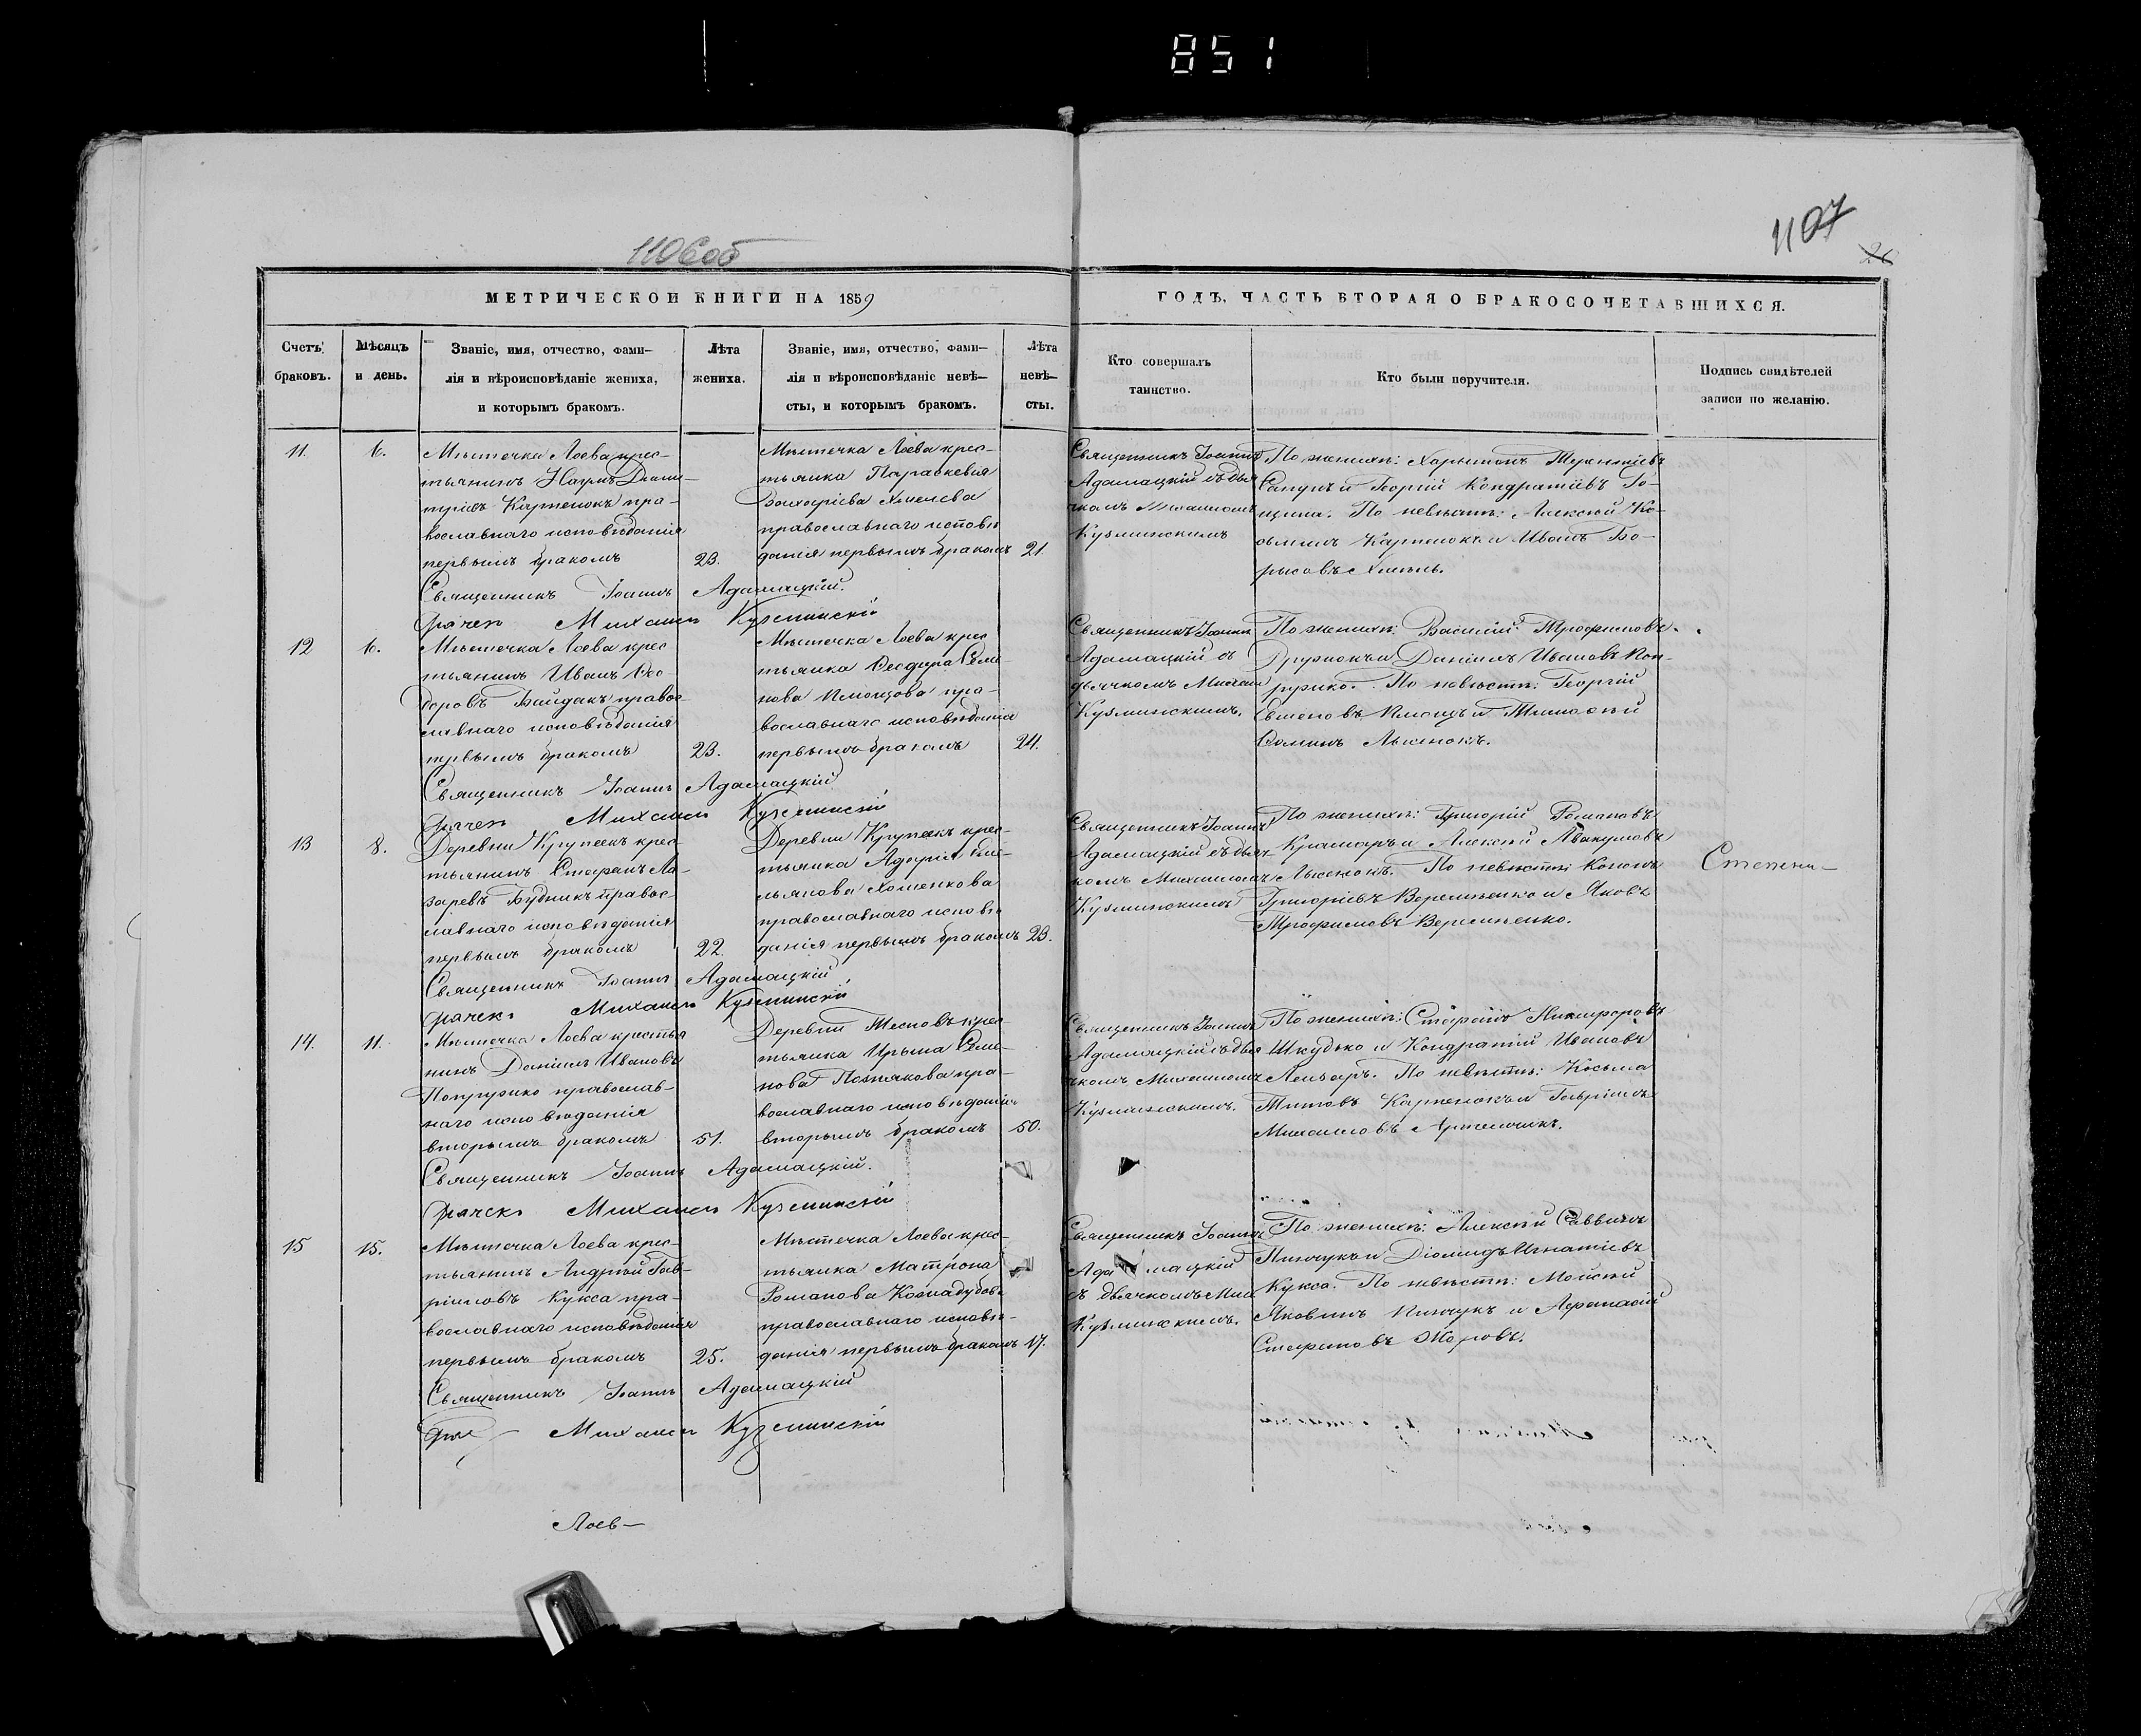 851
1107
26
1106об
МЕТРИЧЕСКОЙ КНИГИ НА 1859
ГОДЪ, ЧАСТЬ ВТОРАЯ О БРАКОСОЧЕТАВШИХСЯ.
Счетъ браковъ.
Мѣсяцъ и день.
Званіе, имя, отчество, фами-
лія и вѣроисповѣданіе жениха,
и которымъ бракомъ.
Лѣта
жениха.
Званіе, имя, отчество, фами-
лія и вѣроисповѣданіе невѣ-
сты, и которымъ бракомъ.
Лѣта
невѣ-
сты.
Кто совершалъ
таинство.
Кто были поручители.
Подпись свидѣтелей
записи по желанію.
11.
6.
Мѣстечка Лоева крес-
тьянинъ Наумъ Дими-
тріевъ Карпенокъ пра-
вославнаго исповѣданія
первымъ бракомъ
23.
Мѣстечка Лоева крес-
тьянка Параскевія
Хмелева
православнаго исповѣ
данія первымъ бракомъ
21.
Священникъ Іоаннъ
Адамацкій съ дья
чкомъ Михаиломъ
Кузминскимъ
По женихѣ: Харытонъ Терентіевъ
Сапунъ и Георгій Кондратіевъ Го-
цына. По невѣстѣ: Алексѣй Ко-
зьминъ Карпенокъ и Иванъ Бо-
рисовъ Хмель.
Священникъ Іоаннъ Адамацкій.
Дячекъ Михаилъ Кузминскій
12
6.
Мѣстечка Лоева крес
тьянинъ Иванъ Ѳео
доровъ Байдакъ правос-
лавнаго исповѣданія
первымъ бракомъ
23.
Мѣстечка Лоева крес
тьянка Ѳеодора Семе-
нова Клюцова пра-
вославнаго исповѣданія
первымъ бракомъ
24.
Священникъ Іоаннъ
Адамацкій съ
дьячкомъ Михаил
Кузминскимъ.
По женихѣ: Василій Трофимовъ
Дружокъ и Даніилъ Ивановъ
По невѣстѣ: Георгій
Семеновъ и Тимоѳей
Ѳоминъ Лысенокъ.
Священникъ Іоаннъ Адамацкій
Дячекъ Михаилъ Кузминскій
13
8.
Деревни Крупеекъ крес-
тьянинъ Стефанъ Ла-
заревъ Будникъ правос-
лавнаго исповѣданія
первымъ бракомъ
22.
Деревни Крупеекъ крес-
тьянка Адарія Еме-
льянова Хоменкова
православнаго исповѣ
данія первымъ бракомъ
23.
Священникъ Іоаннъ
Адамацкій съ дьяч-
комъ Михаиломъ
Кузминскимъ
По женихѣ: Григорій Романовъ
Крамаръ и Алексѣй Авакумовъ
Лысенокъ. По невѣстѣ: Кононъ
Григоріевъ Веремьенко и Яковъ
Трофимовъ Веремьенко.
Священникъ Іоаннъ Адамацкій
Дячекъ Михаилъ Кузминскій
14.
11.
Мѣстечка Лоева крестья
нинъ Даніилъ Ивановъ
православ-
наго исповѣданія
вторымъ бракомъ
51.
Деревни крес-
тьянка Ирына Семе-
нова Познякова пра-
вославнаго исповѣданія
вторымъ бракомъ
50.
Священникъ Іоаннъ
Адамацкій съ дья
чкомъ Михаиломъ
Кузминскимъ.
По женихѣ: Стефанъ Никифоровъ
Шкудько и Кондратій Ивановъ
По невѣстѣ: Косьма
Титовъ Карпенокъ и Гавріилъ
Михаиловъ
Священникъ Іоаннъ Адамацкій.
Дячекъ Михаилъ Кузминскій
15
15.
Мѣстечка Лоева крес-
тьянинъ Андрей Гав-
ріиловъ Кукса пра-
вославнаго исповѣданія
первымъ бракомъ
25.
Мѣстечка Лоева крес-
тьянка Матрона
Романова
православнаго исповѣ-
данія первымъ бракомъ
17.
Священникъ Іоаннъ
Адамацкій
съ дьячкомъ Мих
Кузминскимъ.
По женихѣ: Алексѣй Саввинъ
Пинчукъ и Діомидъ Игнатіевъ
Кукса. По невѣстѣ: Мойсей
Яковлевъ Пинчукъ и Афанасій
Стефановъ
Священникъ Іоаннъ Адамацкій
Михаилъ Кузминскій
Лоев-